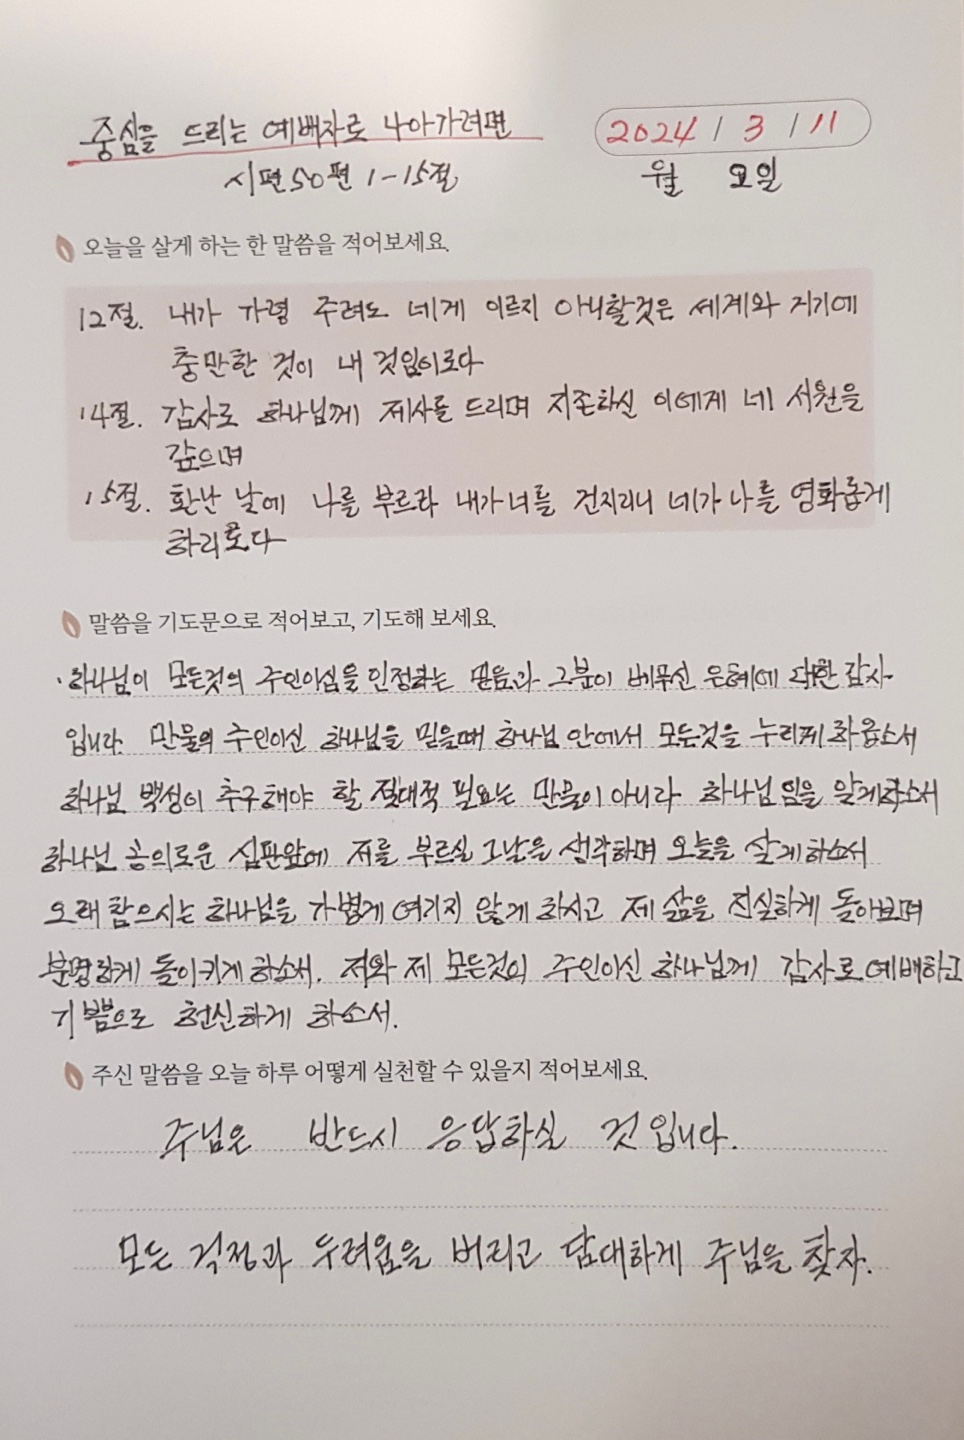 중심을 드리는 예배자로 나아가려면
2024 / 3 / 11
시편50편 1-15절
월 요일
오늘을 살게 하는 한 말씀을 적어보세요.
12절. 내가 가령 주려도 네게 이르지 아니할것은 세계와 거기에
충만한 것이 내 것임이로다
14절. 감사로 하나님께 제사를 드리며 지존하신 이에게 네 서원을
갚으며
15절. 환난 날에 나를 부르라 내가 너를 건지리니 네가 나를 영화롭게
하리로다
말씀을 기도문으로 적어보고, 기도해 보세요.
·하나님이 모든것의 주인이심을 인정하는 믿음과 그분이 베푸신 은혜에 대한 감사
입니다. 만물의 주인이신 하나님을 믿을때 하나님 안에서 모든것을 누리게 하옵소서
하나님 백성이 추구해야 할 절대적 필요는 만물이 아니라 하나님 임을 알게하소서
하나님 공의로운 심판앞에 저를 부르실 그날을 생각하며 오늘을 살게하소서
오래 참으시는 하나님을 가볍게 여기지 않게 하시고 제 삶을 진실하게 돌아보며
분명하게 돌이키게 하소서. 저와 제 모든것의 주인이신 하나님께 감사로 예배하고
기쁨으로 헌신하게 하소서.
주신 말씀을 오늘 하루 어떻게 실천할 수 있을지 적어보세요.
주님은 반드시 응답하실 것입니다.
모든 걱정과 두려움을 버리고 담대하게 주님을 찾자.